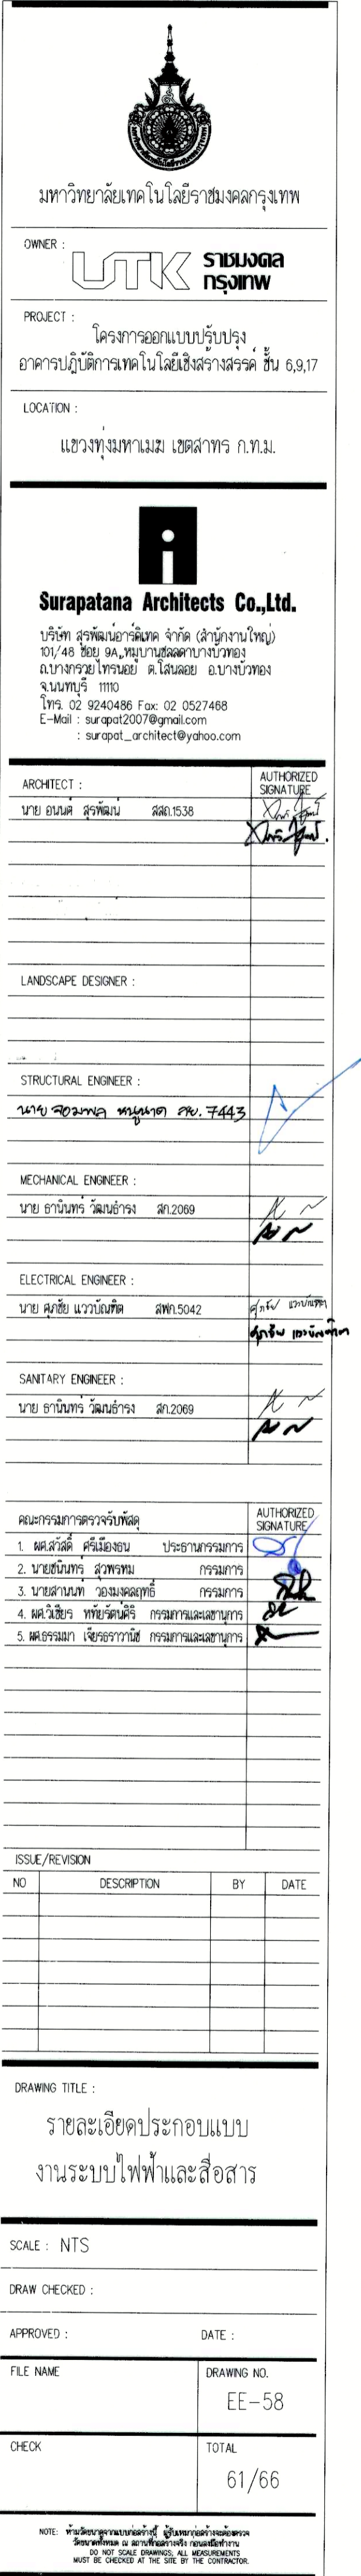 มหาวิทยาลัยเทคโนโลยีราชมงคลกรุงเทพ
OWNER :
UTK ราชมงคล
กรุงเทพ
PROJECT :
โครงการออกแบบปรับปรุง
อาคารปฏิบัติการเทคโนโลยีเชิงสร้างสรรค์ ชั้น 6,9,17
LOCATION :
แขวงทุ่งมหาเมฆ เขตสาทร ก.ท.ม.
Surapatana Architects Co.,Ltd.
บริษัท สุรพัฒน์อาร์คิเทค จำกัด (สำนักงานใหญ่)
101/48 ซอย 9A หมู่บ้านชลลดาบางบัวทอง
ถ.บางกรวยไทรน้อย ต.โสนลอย อ.บางบัวทอง
จ.นนทบุรี 11110
โทร. 02 9240486 Fax: 02 0527468
E-Mail : surapat2007@gmail.com
: surapat_architect@yahoo.com
ARCHITECT :
AUTHORIZED
SIGNATURE
นาย อนนต์ สุรพัฒน์ สสถ.1538
LANDSCAPE DESIGNER :
STRUCTURAL ENGINEER :
นาย จอมพล หนูนาด สย. 7443
MECHANICAL ENGINEER :
นาย ธานินทร์ วัฒนธำรง สก.2069
ELECTRICAL ENGINEER :
นาย ศุภชัย แววบัณฑิต สฟก.5042
ศุภชัย แววบัณฑิต
ศุภชัย แววบัณฑิต
SANITARY ENGINEER :
นาย ธานินทร์ วัฒนธำรง สก.2069
คณะกรรมการตรวจรับพัสดุ
AUTHORIZED
SIGNATURE
1. ผศ.สวัสดิ์ ศรีเมืองธน ประธานกรรมการ
2. นายชนินทร์ สุวพรหม กรรมการ
3. นายสานนท์ วองมงคลฤทธิ์ กรรมการ
4. ผศ.วิเชียร หทัยรัตน์ศิริ กรรมการและเลขานุการ
5. ผศ.ธรรมมา เจียรธราวานิช กรรมการและเลขานุการ
ISSUE/REVISION
NO DESCRIPTION BY DATE
DRAWING TITLE :
รายละเอียดประกอบแบบ
งานระบบไฟฟ้าและสื่อสาร
SCALE : NTS
DRAW CHECKED :
APPROVED : DATE :
FILE NAME DRAWING NO.
EE-58
CHECK TOTAL
61/66
NOTE: ห้ามวัดขนาดจากแบบก่อสร้างนี้ ผู้รับเหมาก่อสร้างจะต้องตรวจ
วัดขนาดทั้งหมด ณ สถานที่ก่อสร้างจริง ก่อนลงมือทำงาน
DO NOT SCALE DRAWINGS; ALL MEASUREMENTS
MUST BE CHECKED AT THE SITE BY THE CONTRACTOR.